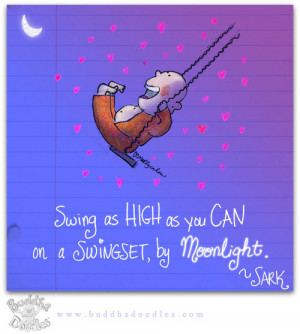 Swing as HIGH as you CAN
on a SWINGSET, by Moonlight.
~SARK
Buddha
Doodles
www.buddhadoodles.com